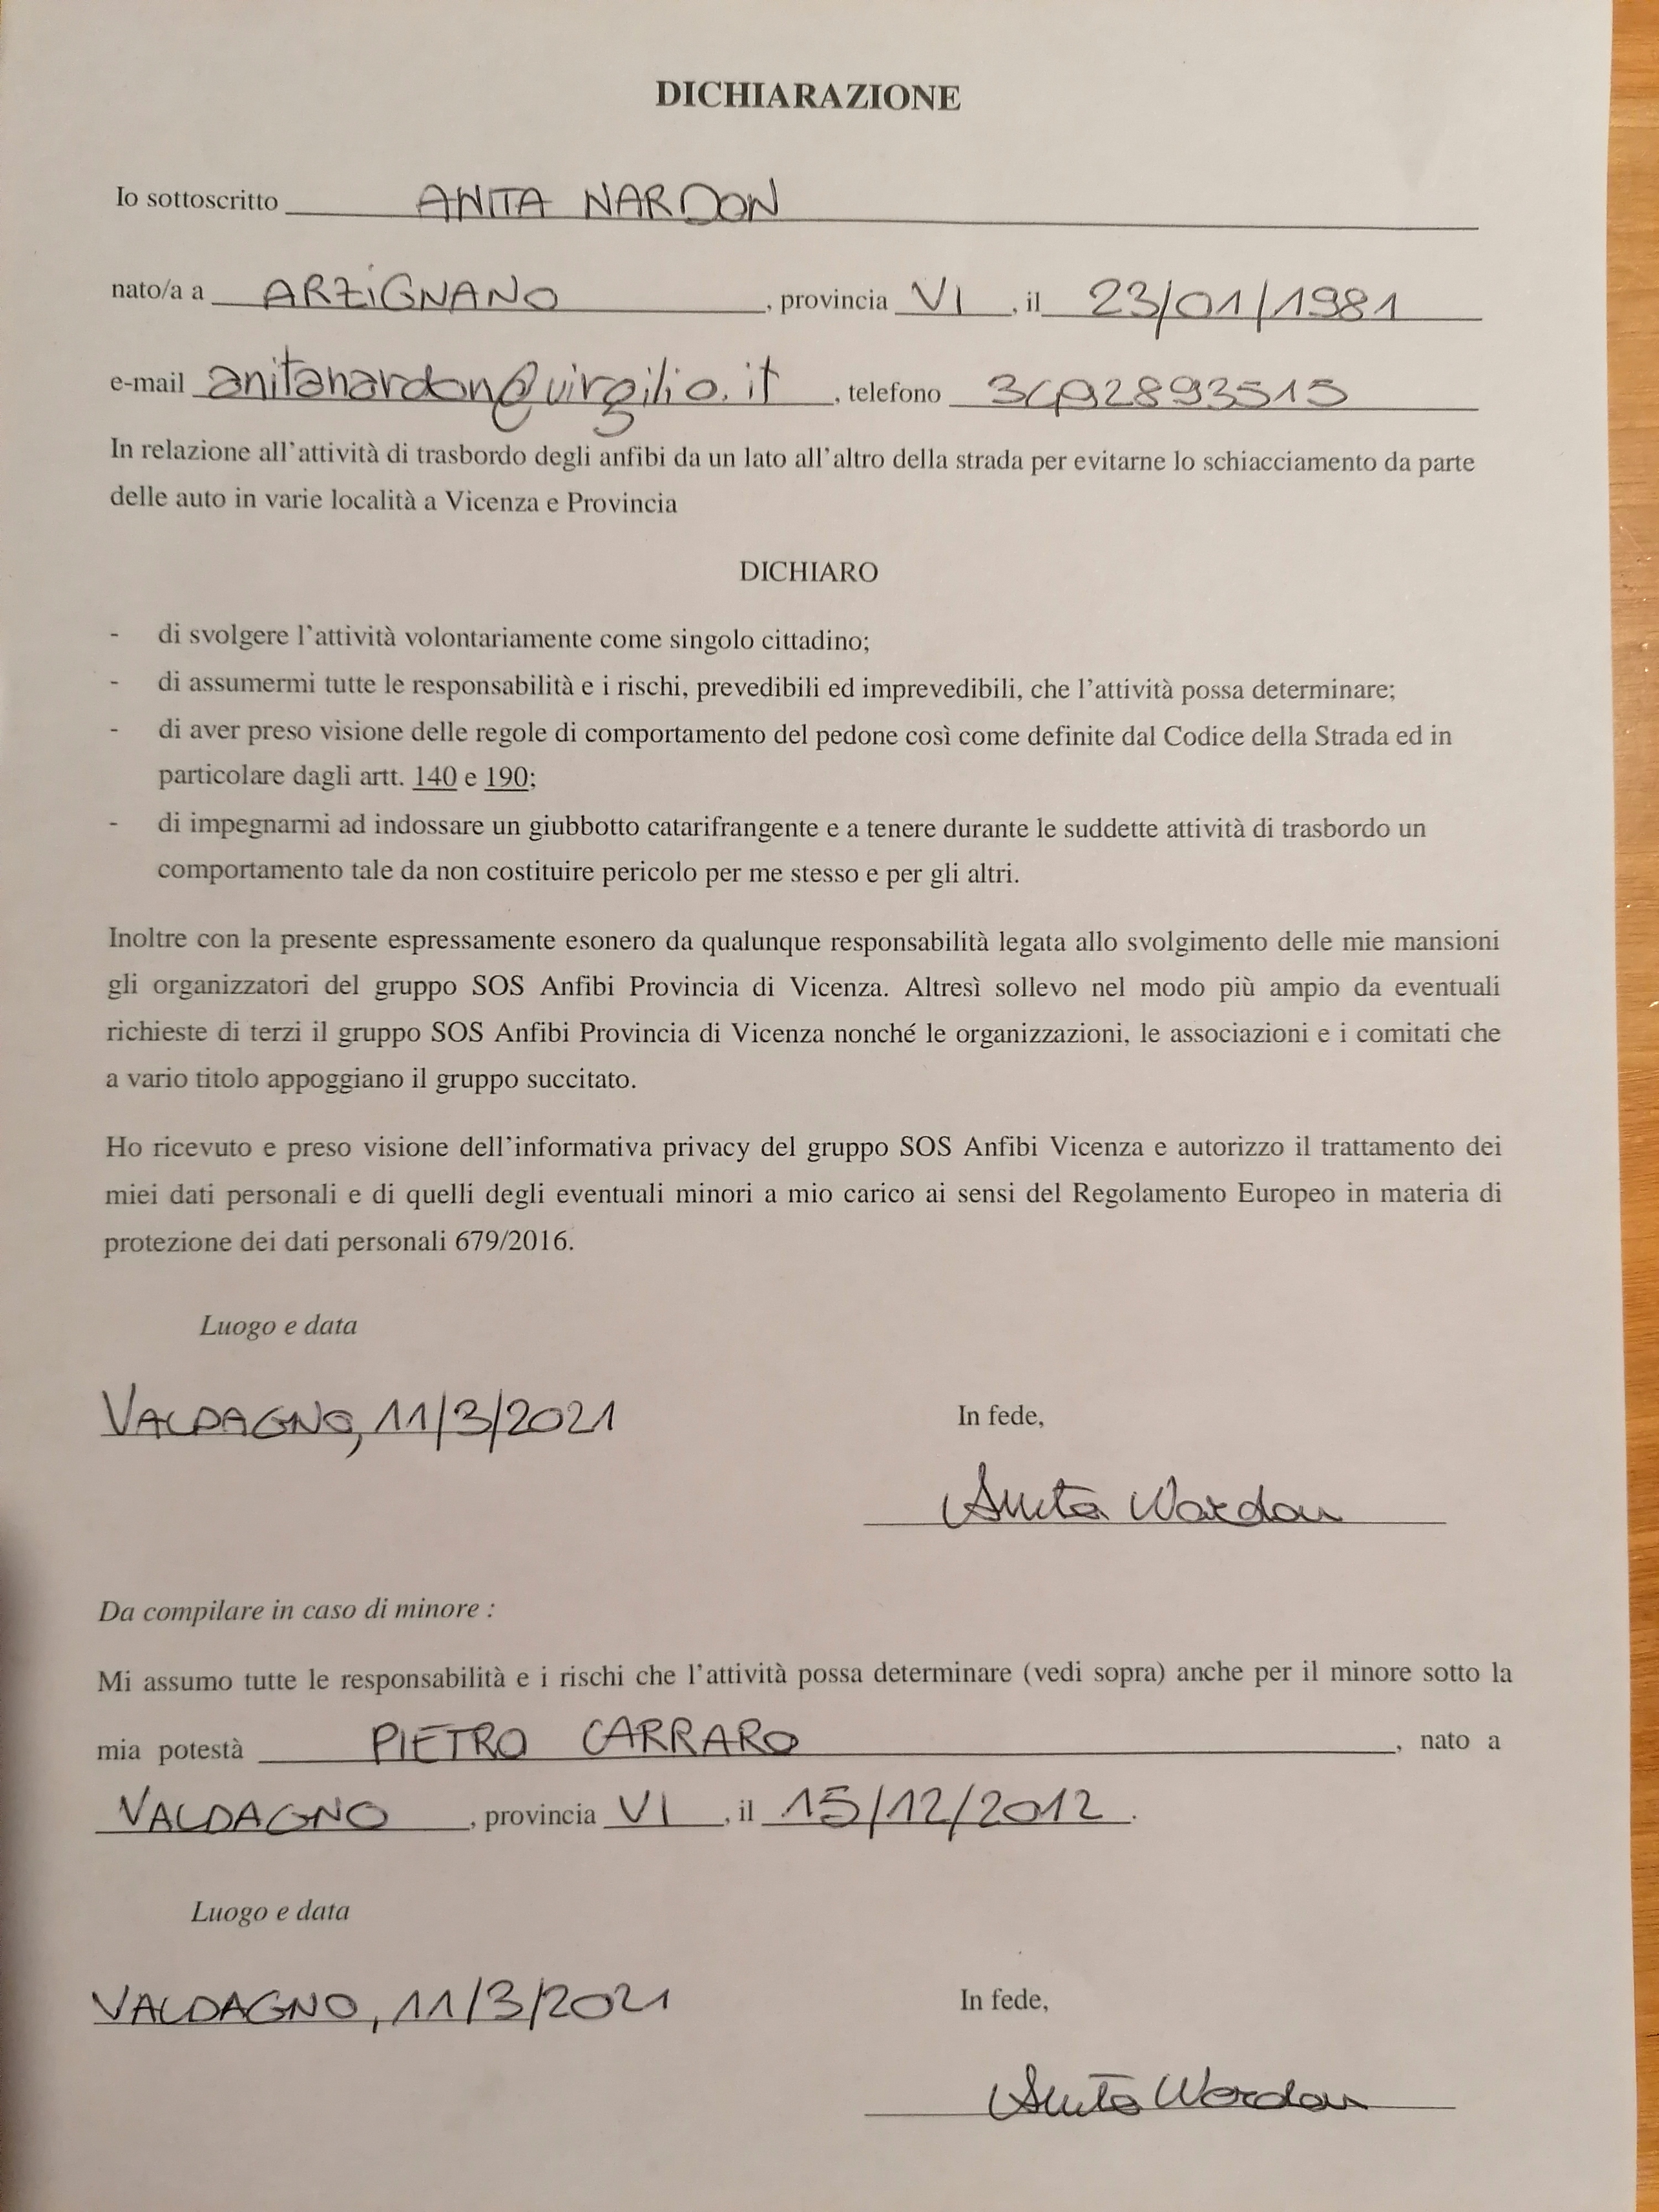 DICHIARAZIONE
Io sottoscritto ANITA NARDON
nato/a a ARZIGNANO, provincia VI, il 23/01/1981
e-mail anitanardon@virgilio.it, telefono 3492893515
In relazione all'attività di trasbordo degli anfibi da un lato all'altro della strada per evitarne lo schiacciamento da parte
delle auto in varie località a Vicenza e Provincia
DICHIARO
- di svolgere l'attività volontariamente come singolo cittadino;
- di assumermi tutte le responsabilità e i rischi, prevedibili ed imprevedibili, che l'attività possa determinare;
- di aver preso visione delle regole di comportamento del pedone così come definite dal Codice della Strada ed in
particolare dagli artt. 140 e 190;
- di impegnarmi ad indossare un giubbotto catarifrangente e a tenere durante le suddette attività di trasbordo un
comportamento tale da non costituire pericolo per me stesso e per gli altri.
Inoltre con la presente espressamente esonero da qualunque responsabilità legata allo svolgimento delle mie mansioni
gli organizzatori del gruppo SOS Anfibi Provincia di Vicenza. Altresì sollevo nel modo più ampio da eventuali
richieste di terzi il gruppo SOS Anfibi Provincia di Vicenza nonché le organizzazioni, le associazioni e i comitati che
a vario titolo appoggiano il gruppo succitato.
Ho ricevuto e preso visione dell'informativa privacy del gruppo SOS Anfibi Vicenza e autorizzo il trattamento dei
miei dati personali e di quelli degli eventuali minori a mio carico ai sensi del Regolamento Europeo in materia di
protezione dei dati personali 679/2016.
Luogo e data
VALDAGNO, 11/3/2021
In fede,
Anita Nardon
Da compilare in caso di minore :
Mi assumo tutte le responsabilità e i rischi che l'attività possa determinare (vedi sopra) anche per il minore sotto la
mia potestà PIETRO CARRARO, nato a
VALDAGNO, provincia VI, il 15/12/2012.
Luogo e data
VALDAGNO, 11/3/2021
In fede,
Anita Nardon